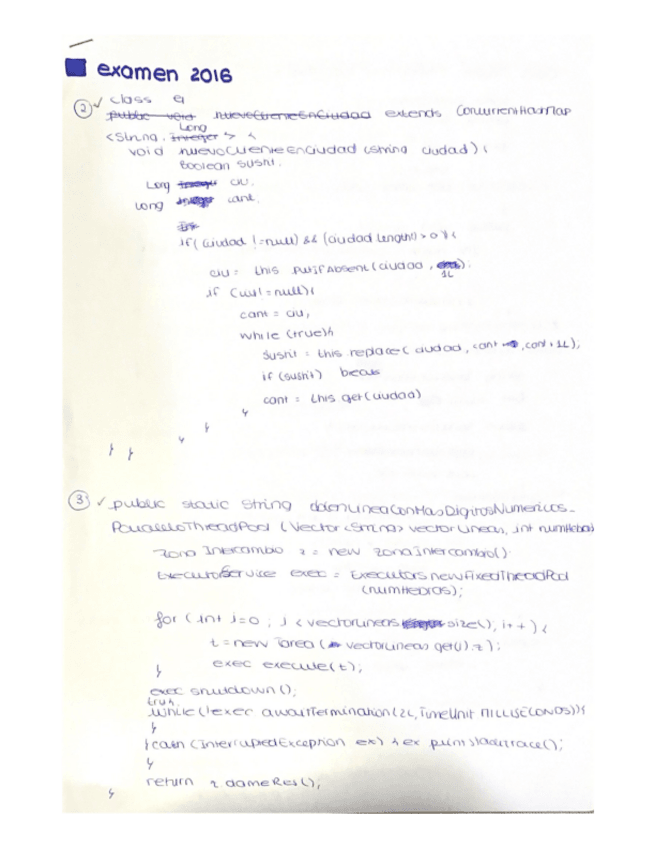 examen 2016
② ✓ class a
public void nuevoClienteEnCiudad extends ConcurrentHashMap
Long
<String, Integer> {
void nuevoClienteEnCiudad (string ciudad) {
Boolean sustit.
Long ciu.
Long cant.
if( (ciudad != null) && (ciudad length() > 0 )) {
ciu = this putIfAbsent (ciudad, 1L);
if (ciu != null) {
cant = ciu,
while (true) {
sustit = this replace ( ciudad, cant, cant + 1L);
if (sustit) break
cant = this get (ciudad)
}
}
}
} }
③ ✓ public static String dameLineaConMasDigitosNumericos_
ParaleloThreadPool (Vector <String> vectorLineas, int numHebras)
Zona Intercambio z = new ZonaIntercambio()
ExecutorService exec = Executors newFixedThreadPool
(numHebras);
for (int i=0 ; i < vectorLineas size(), i++) {
t = new Tarea ( vectorLineas get(i), z);
exec execute(t);
}
exec shutdown ();
try {
while (!exec awaitTermination (2L, TimeUnit MILLISECONDS)) {
}
} catch (InterruptedException ex) { ex printStackTrace();
}
return z dameRes();
}